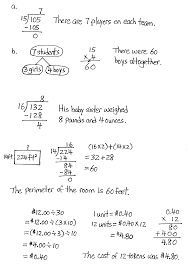 a.
7
15 | 105
-105
0
There are 7 players on each team.
b.
7 students
3 girls 4 boys
15
x 4
60
There were 60
boys altogether.
8
16 | 132
-128
4
His baby sister weighed
8 pounds and 4 ounces.
224 ft²
16
14 | 224
-14
84
-84
0
(16x2)+(14x2)
= 32 + 28
= 60
The perimeter of the room is 60 feet.
$12.00 ÷ 30
= ($12.00 ÷ 3) ÷ 10
= $4.00 ÷ 10
= $0.40
1 unit = $0.40
12 units = $0.40 x 12
= $4.80
0.40
x 12
80
+400
4.80
The cost of 12 tokens was $4.80.